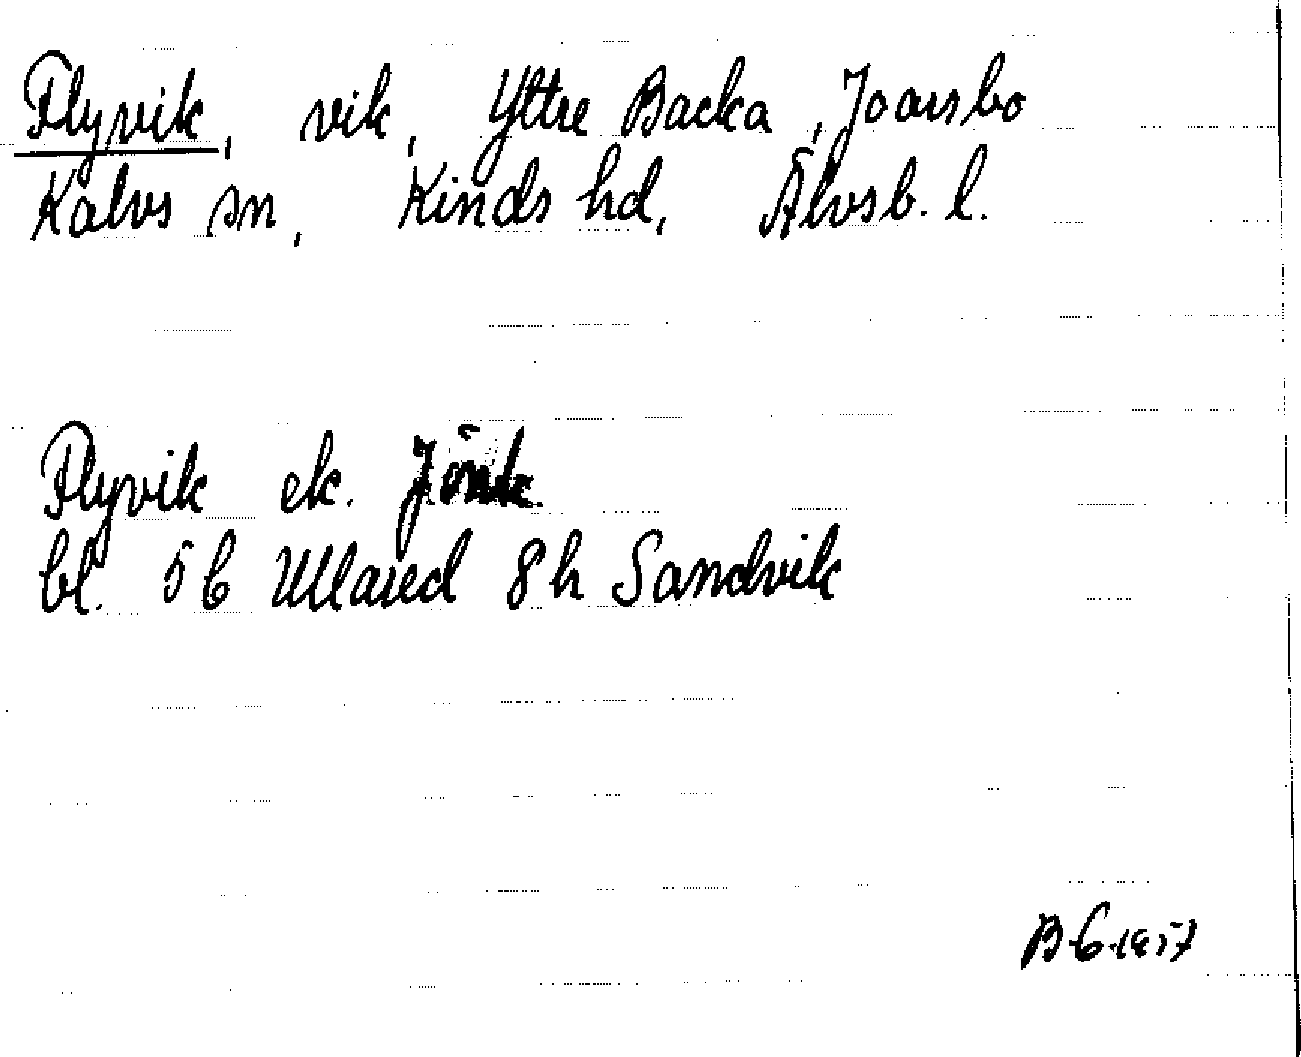 Flyvik, vik, Yttre Backa, Joarsbo
Kalvs sn, Kinds hd, Älvsb. l.
Flyvik ek. Jönk.
bl. 5 6 Ullared 8h Sandvik
1957